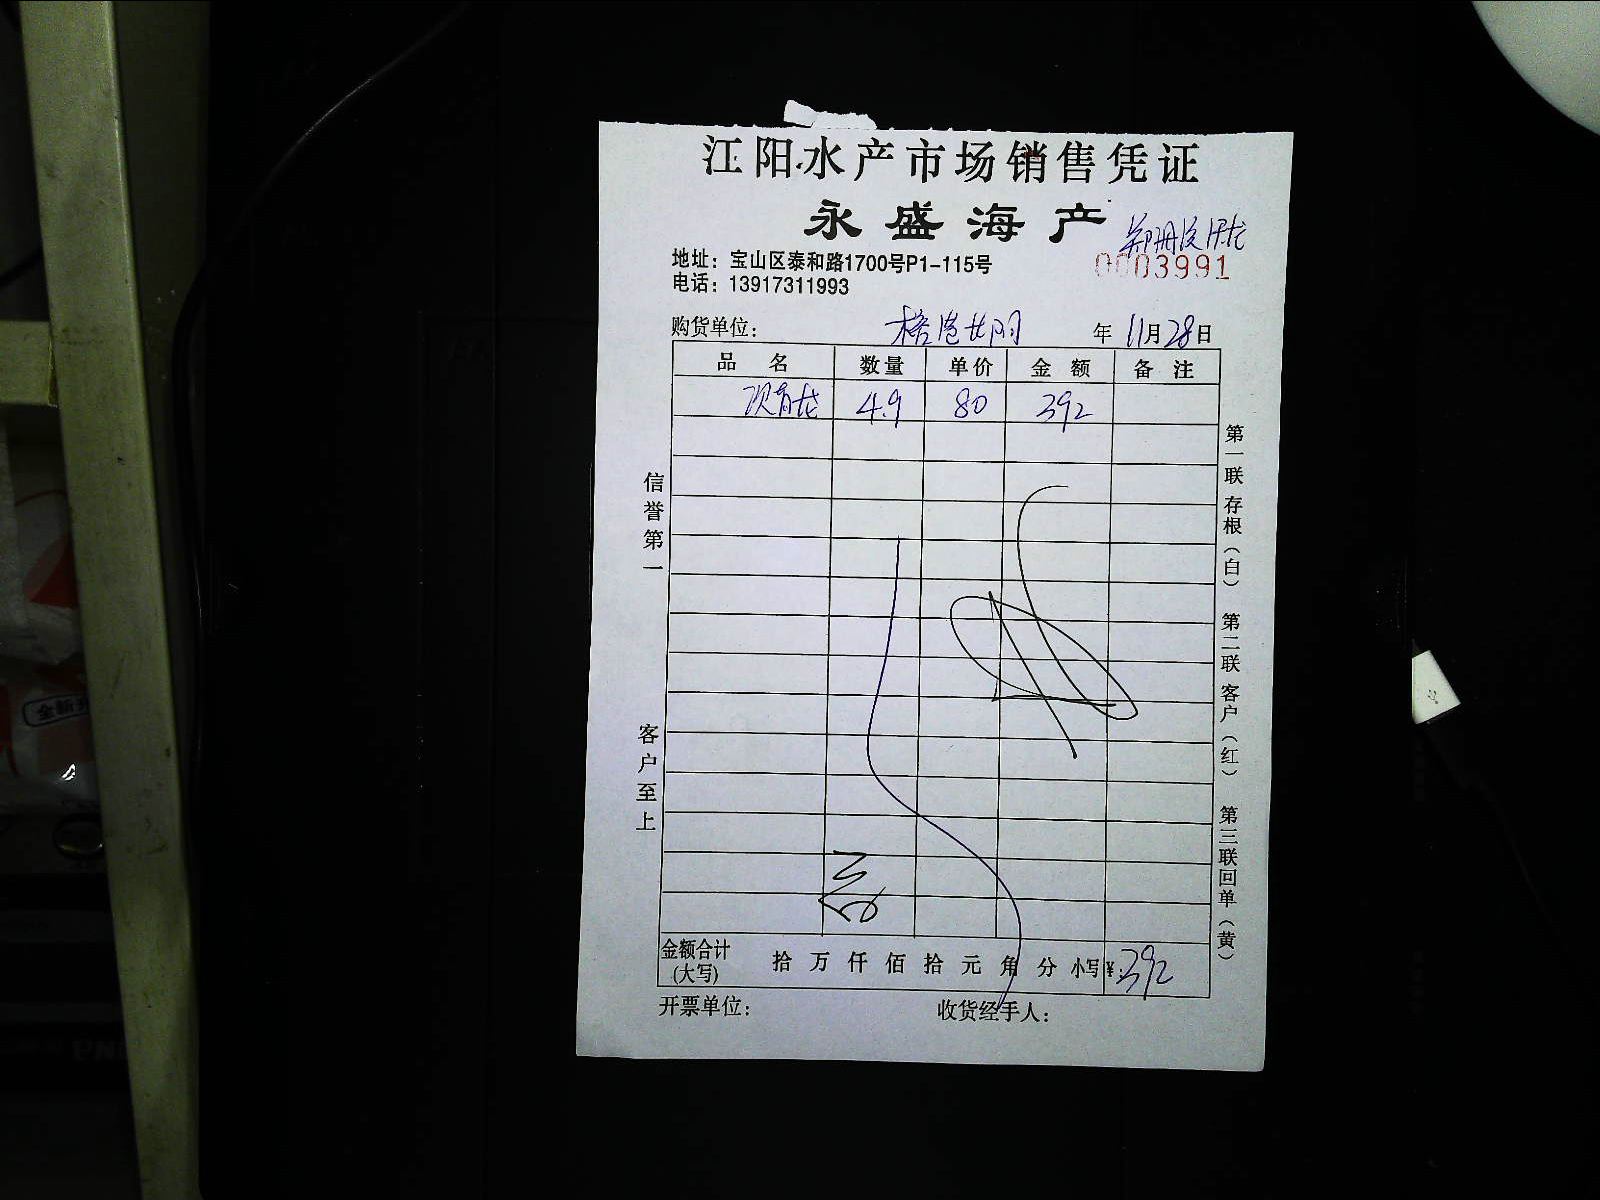 江阳水产市场销售凭证
永盛海产
地址：宝山区泰和路1700号P1-115号
电话：13917311993
0003991
购货单位： 年 11月28日
品 名 数量 单价 金 额 备 注
4.9 80 392
信誉第一
客户至上
第一联 存根（白） 第二联 客户（红） 第三联 回单（黄）
金额合计(大写) 拾 万 仟 佰 拾 元 角 分 小写 ¥: 392
开票单位： 收货经手人：
全新升